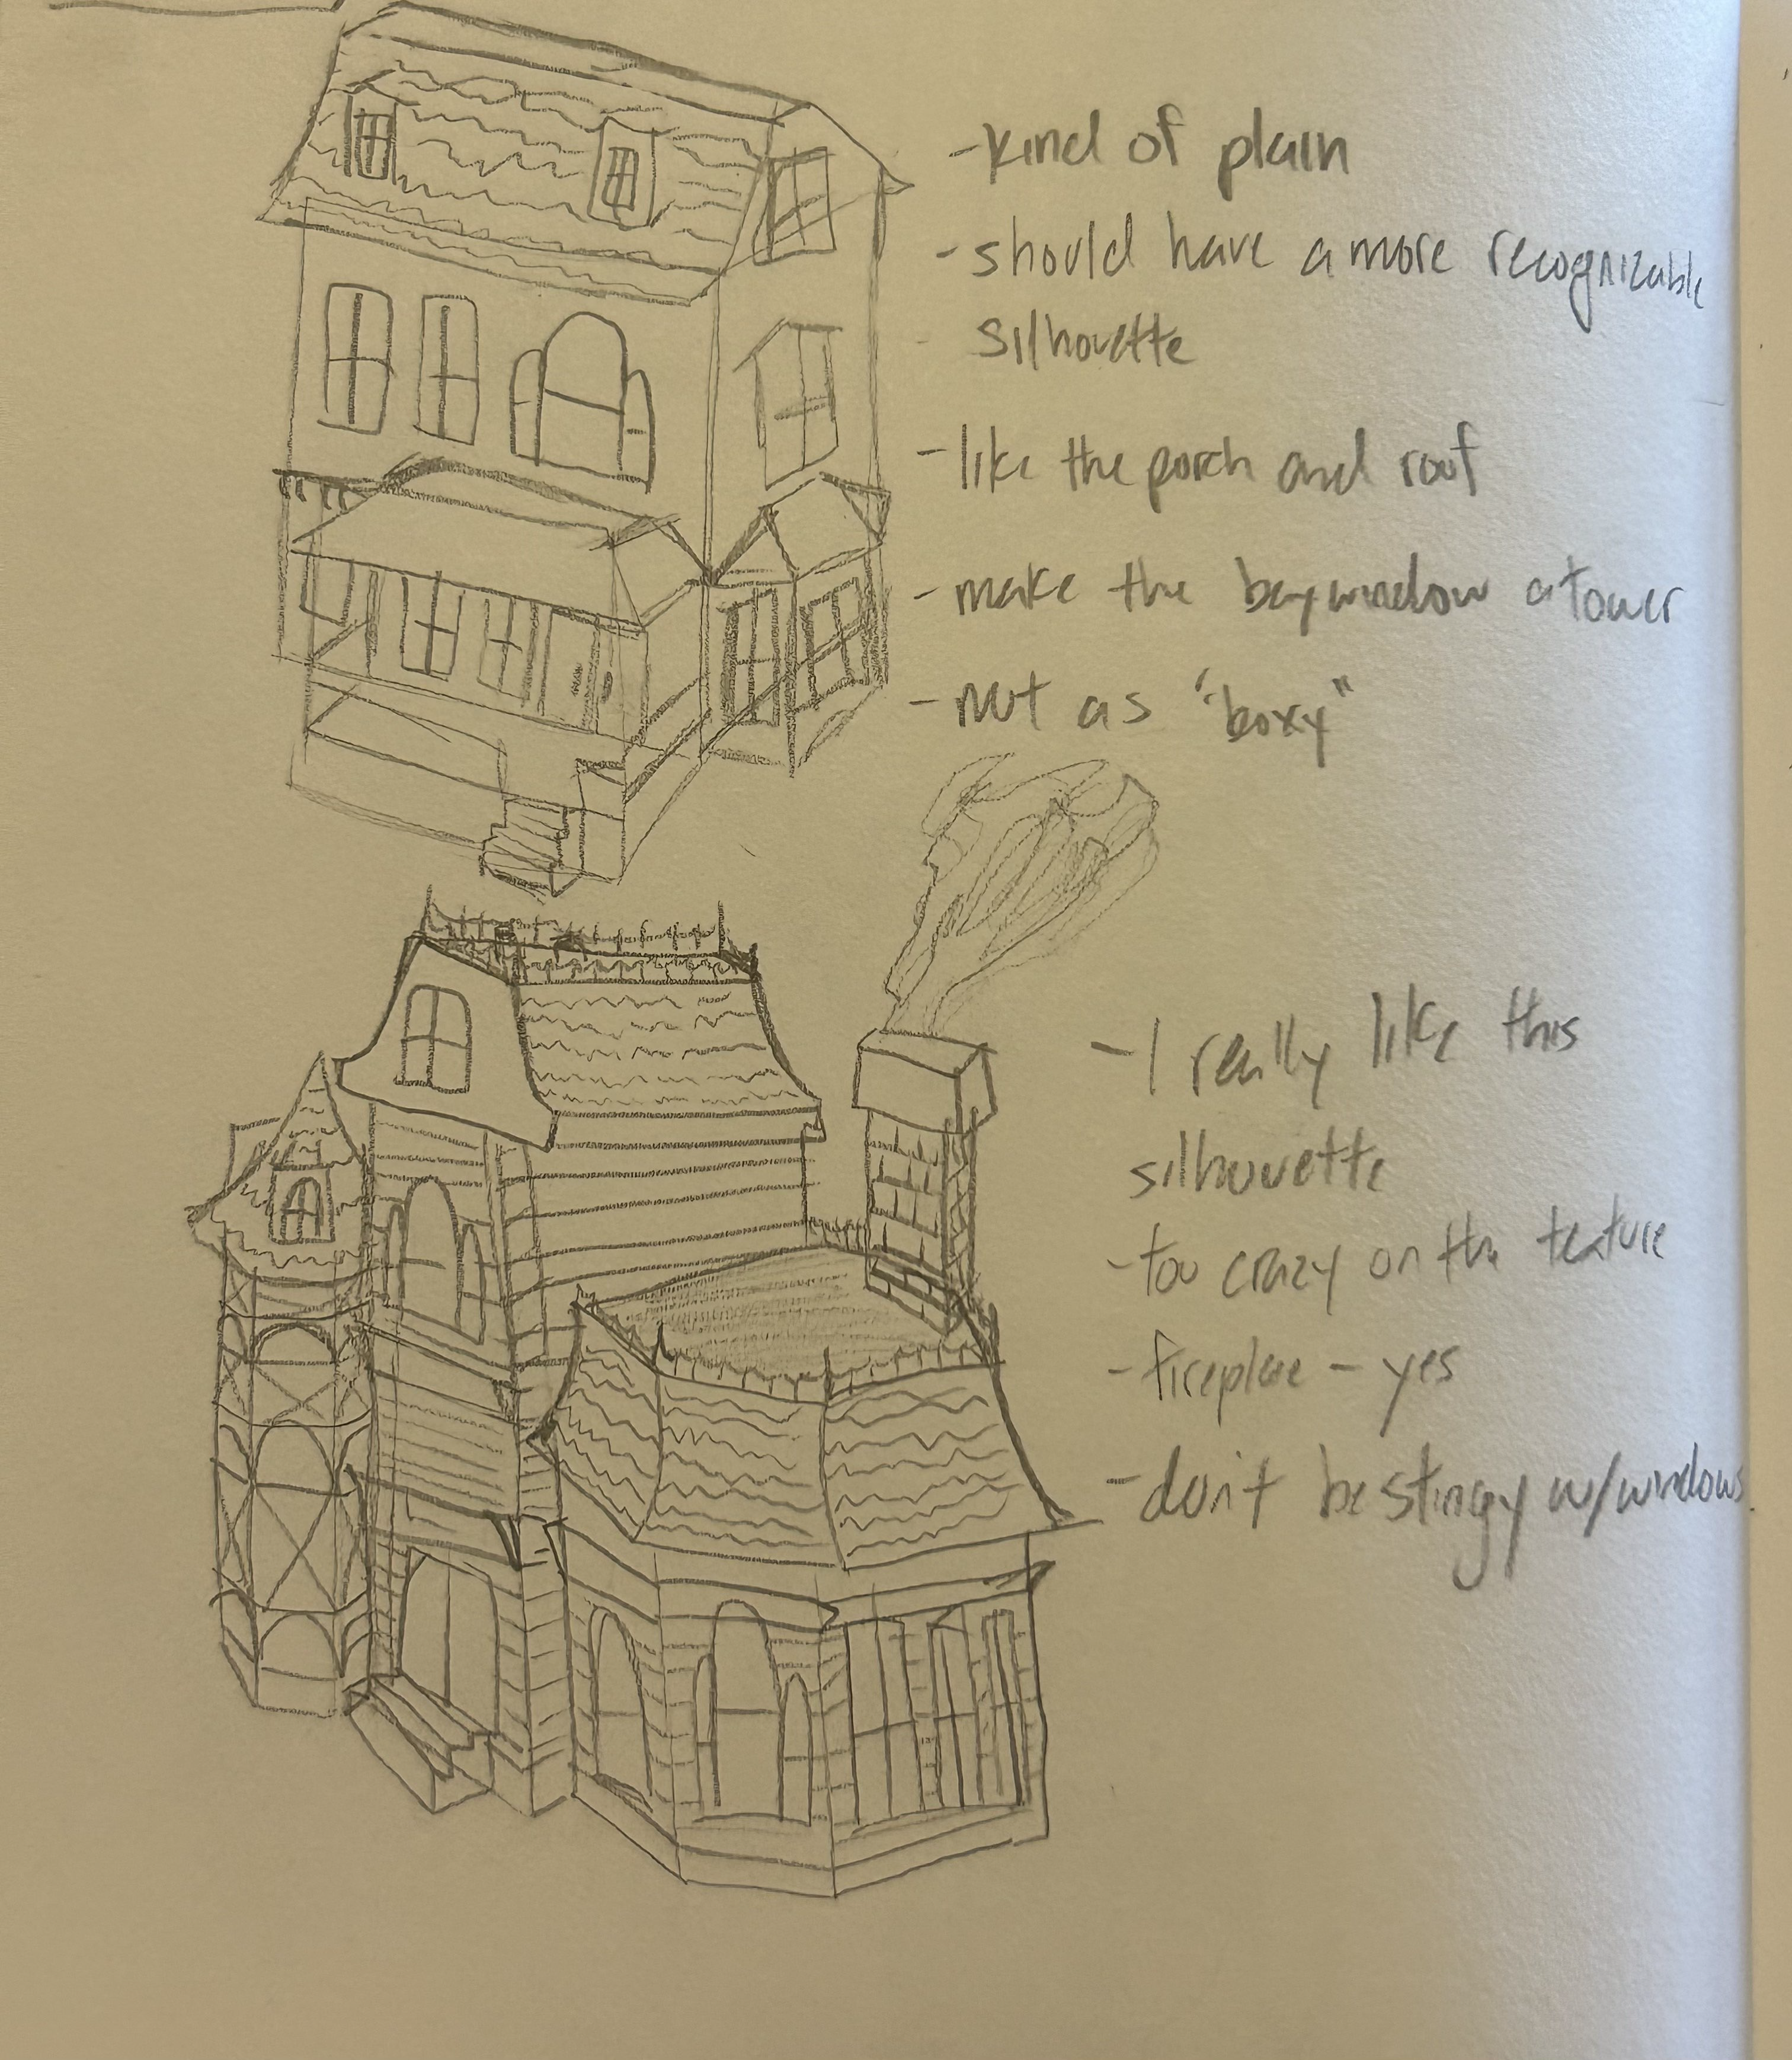 -kind of plain
-should have a more recognizable
silhouette
-like the porch and roof
-make the baywindow a tower
-not as "boxy"
-I really like this
silhouette
-too crazy on the texture
-fireplace - yes
-don't be stingy w/windows.